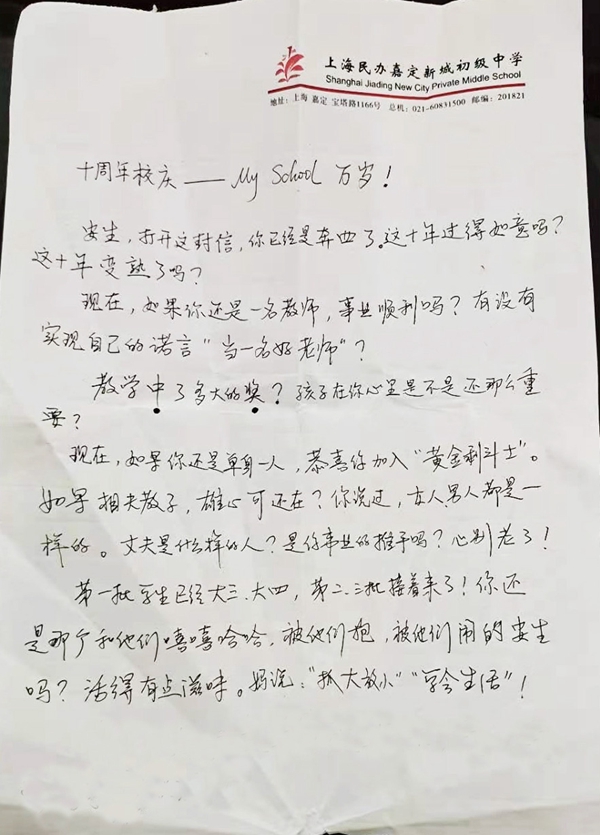 上海民办嘉定新城初级中学
Shanghai Jiading New City Private Middle School
地址：上海 嘉定 宝塔路1166号 总机：021-60831500 邮编：201821
十周年校庆——My School 万岁！
安生，打开这封信，你已经是奔四了。这十年过得如意吗？
这十年变熟了吗？
现在，如果你还是一名教师，事业顺利吗？有没有
实现自己的诺言“当一名好老师”？
教学中了多大的奖？孩子在你心里是不是还那么重
要？
现在，如果你还是单身一人，恭喜你加入“黄金剩斗士”。
如果相夫教子，雄心可还在？你说过，女人男人都是一
样的。丈夫是什么样的人？是你事业的推手吗？心别老了！
第一批学生已经大三、大四，第二、三批接着来了！你还
是那个和他们嘻嘻哈哈，被他们抱，被他们闹的安生
吗？活得有点滋味。妈说：“抓大放小”“学会生活”！